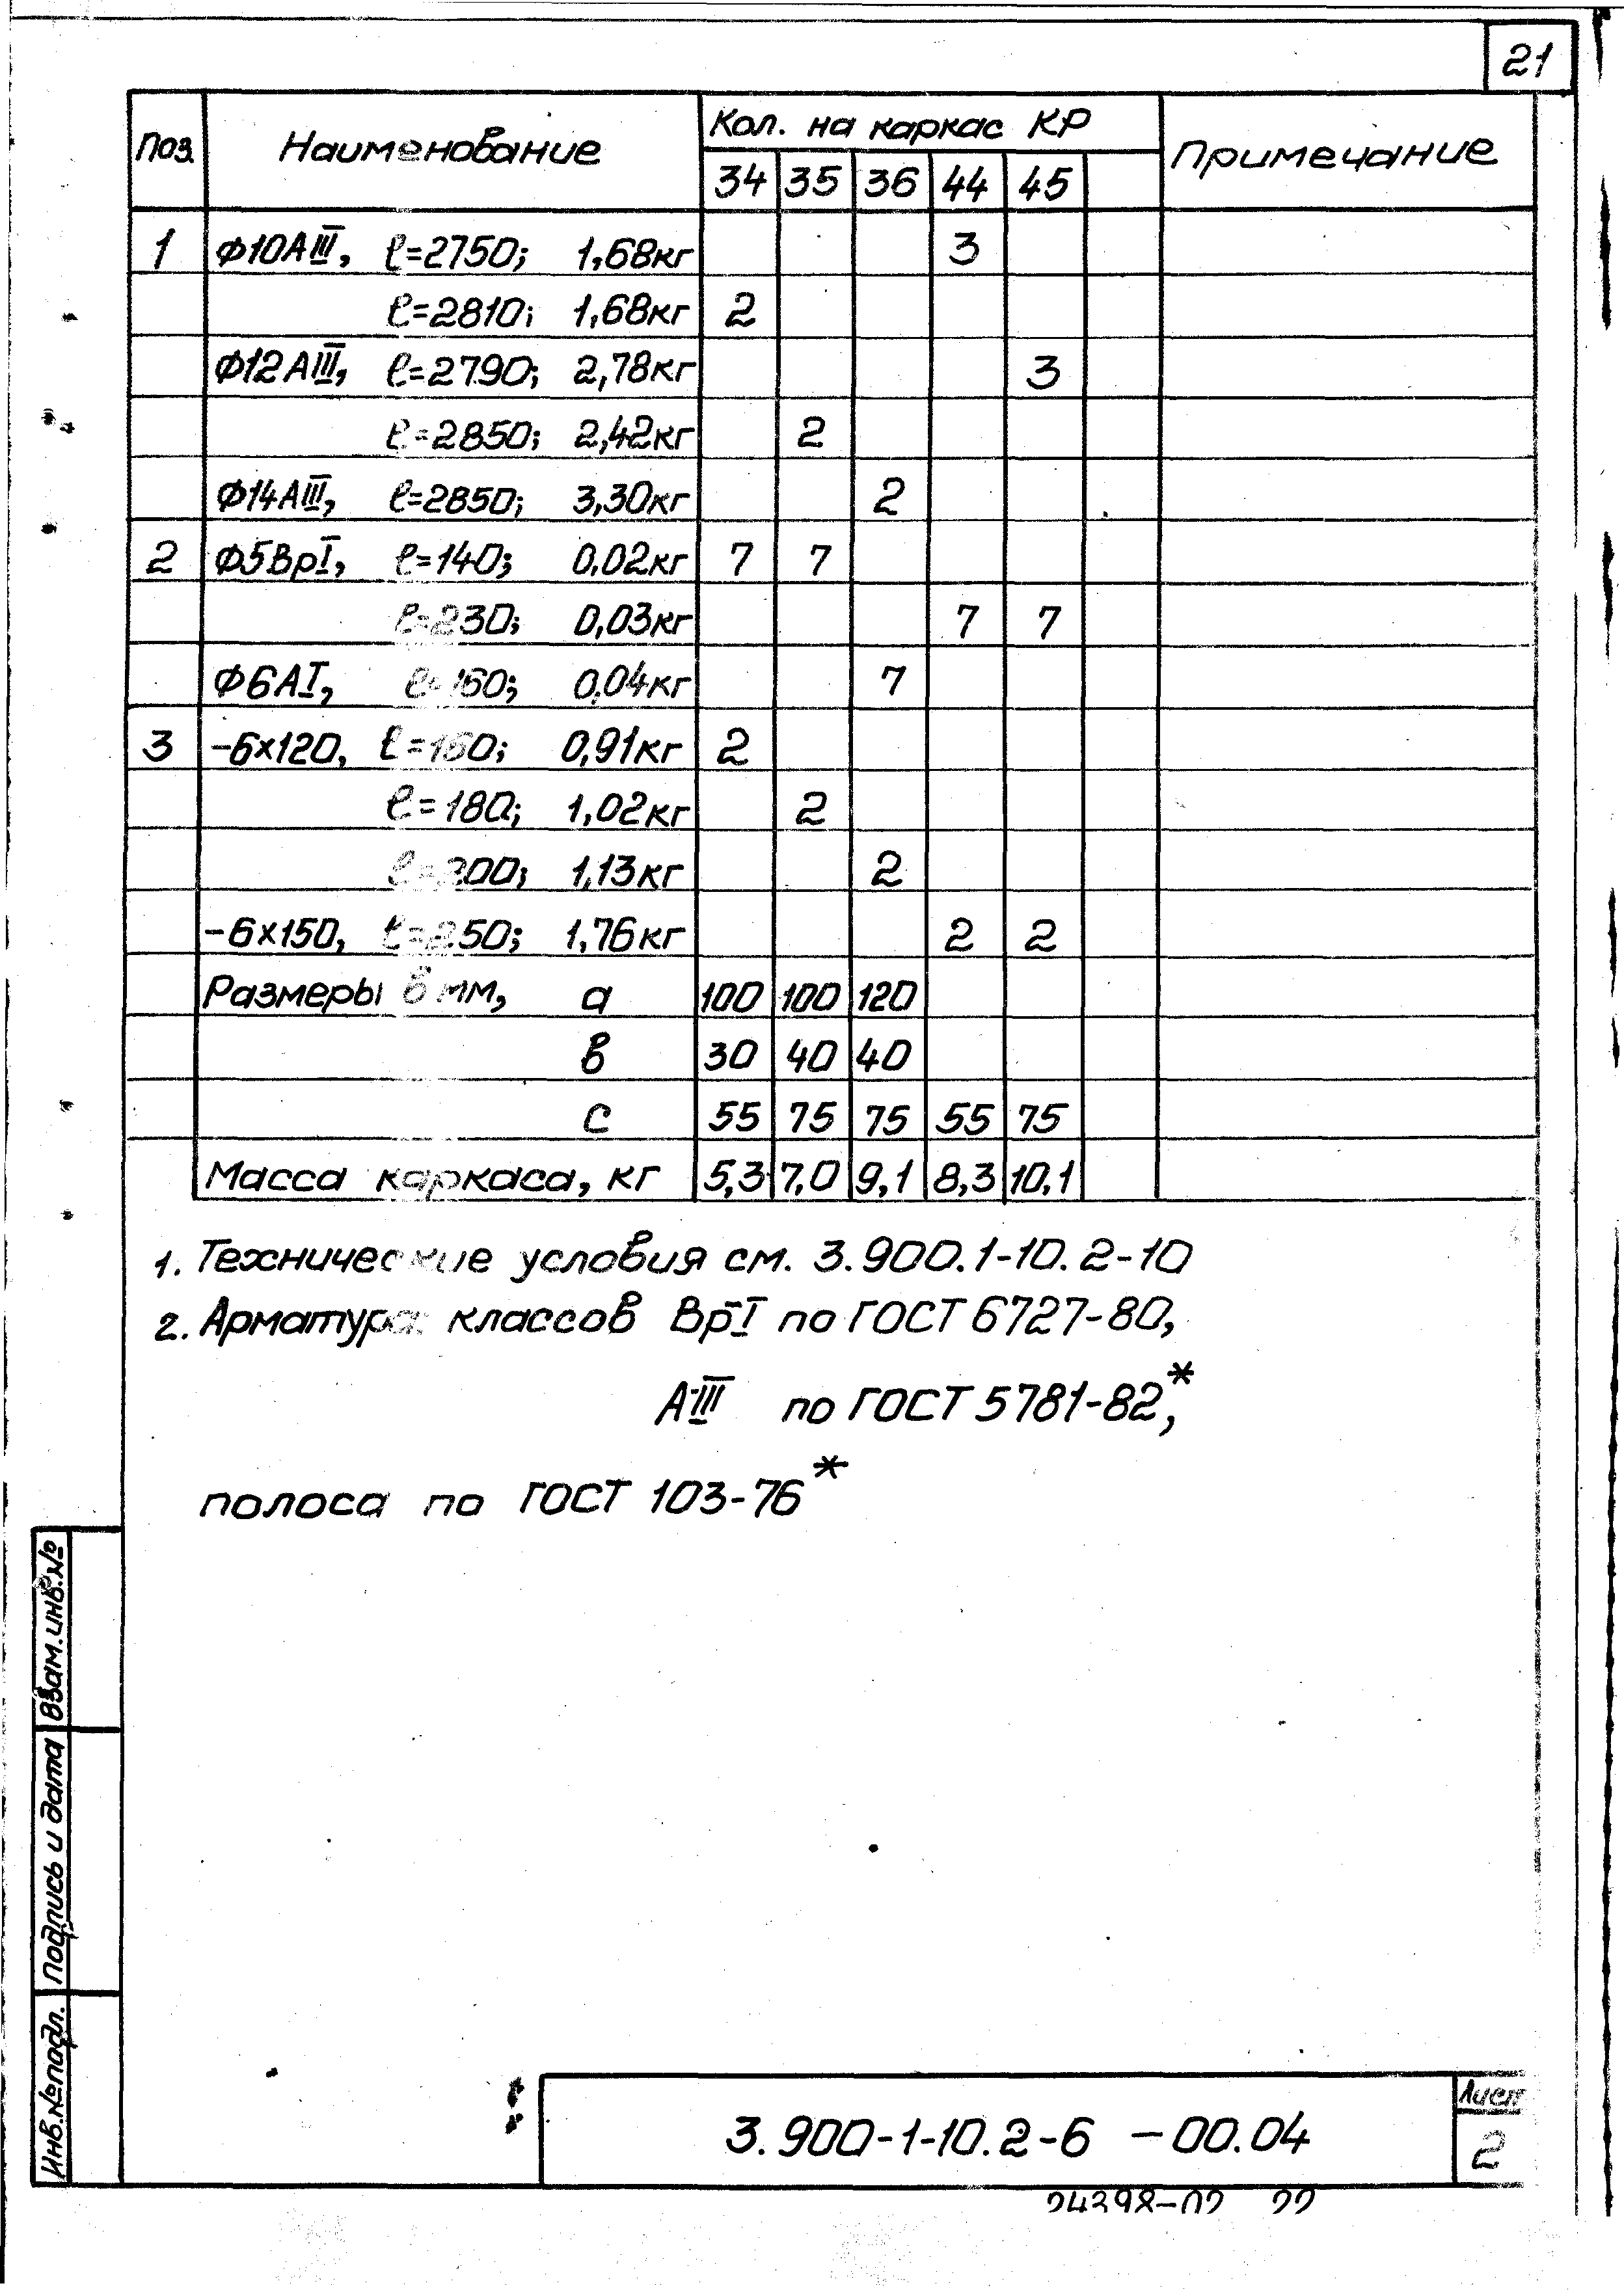 21
Поз. Наименование Кол. на каркас КР Примечание
34 35 36 44 45
1 Ф10АIII, ℓ=2750; 1,68кг 3
ℓ=2810; 1,68кг 2
Ф12АIII, ℓ=2790; 2,78кг 3
ℓ=2850; 2,42кг 2
Ф14АIII, ℓ=2850; 3,30кг 2
2 Ф5ВрI, ℓ=140; 0,02кг 7 7
ℓ=230; 0,03кг 7 7
Ф6АI, ℓ=160; 0,04кг 7
3 -6×120, ℓ=160; 0,91кг 2
ℓ=180; 1,02кг 2
ℓ=200; 1,13кг 2
-6×150, ℓ=250; 1,76кг 2 2
Размеры в мм, а 100 100 120
в 30 40 40
с 55 75 75 55 75
Масса каркаса, кг 5,3 7,0 9,1 8,3 10,1
1. Технические условия см. 3.900.1-10.2-10
2. Арматура классов ВрI по ГОСТ 6727-80,
А-III по ГОСТ 5781-82*,
полоса по ГОСТ 103-76*
Взам.инв.№
Подпись и дата
Инв.№подл.
3.900-1-10.2-6 -00.04
Лист
2
24398-02 22